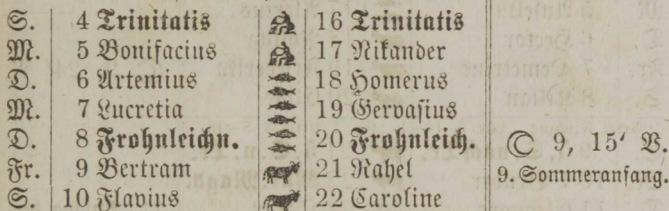 S. 4 Trinitatis 16 Trinitatis
M. 5 Bonifacius 17 Nikander
D. 6 Artemius 18 Homerus
M. 7 Lucretia 19 Gervasius
D. 8 Frohnleichn. 20 Frohnleich. ☾ 9, 15' V.
Fr. 9 Bertram 21 Rahel 9. Sommeranfang.
S. 10 Flavius 22 Caroline